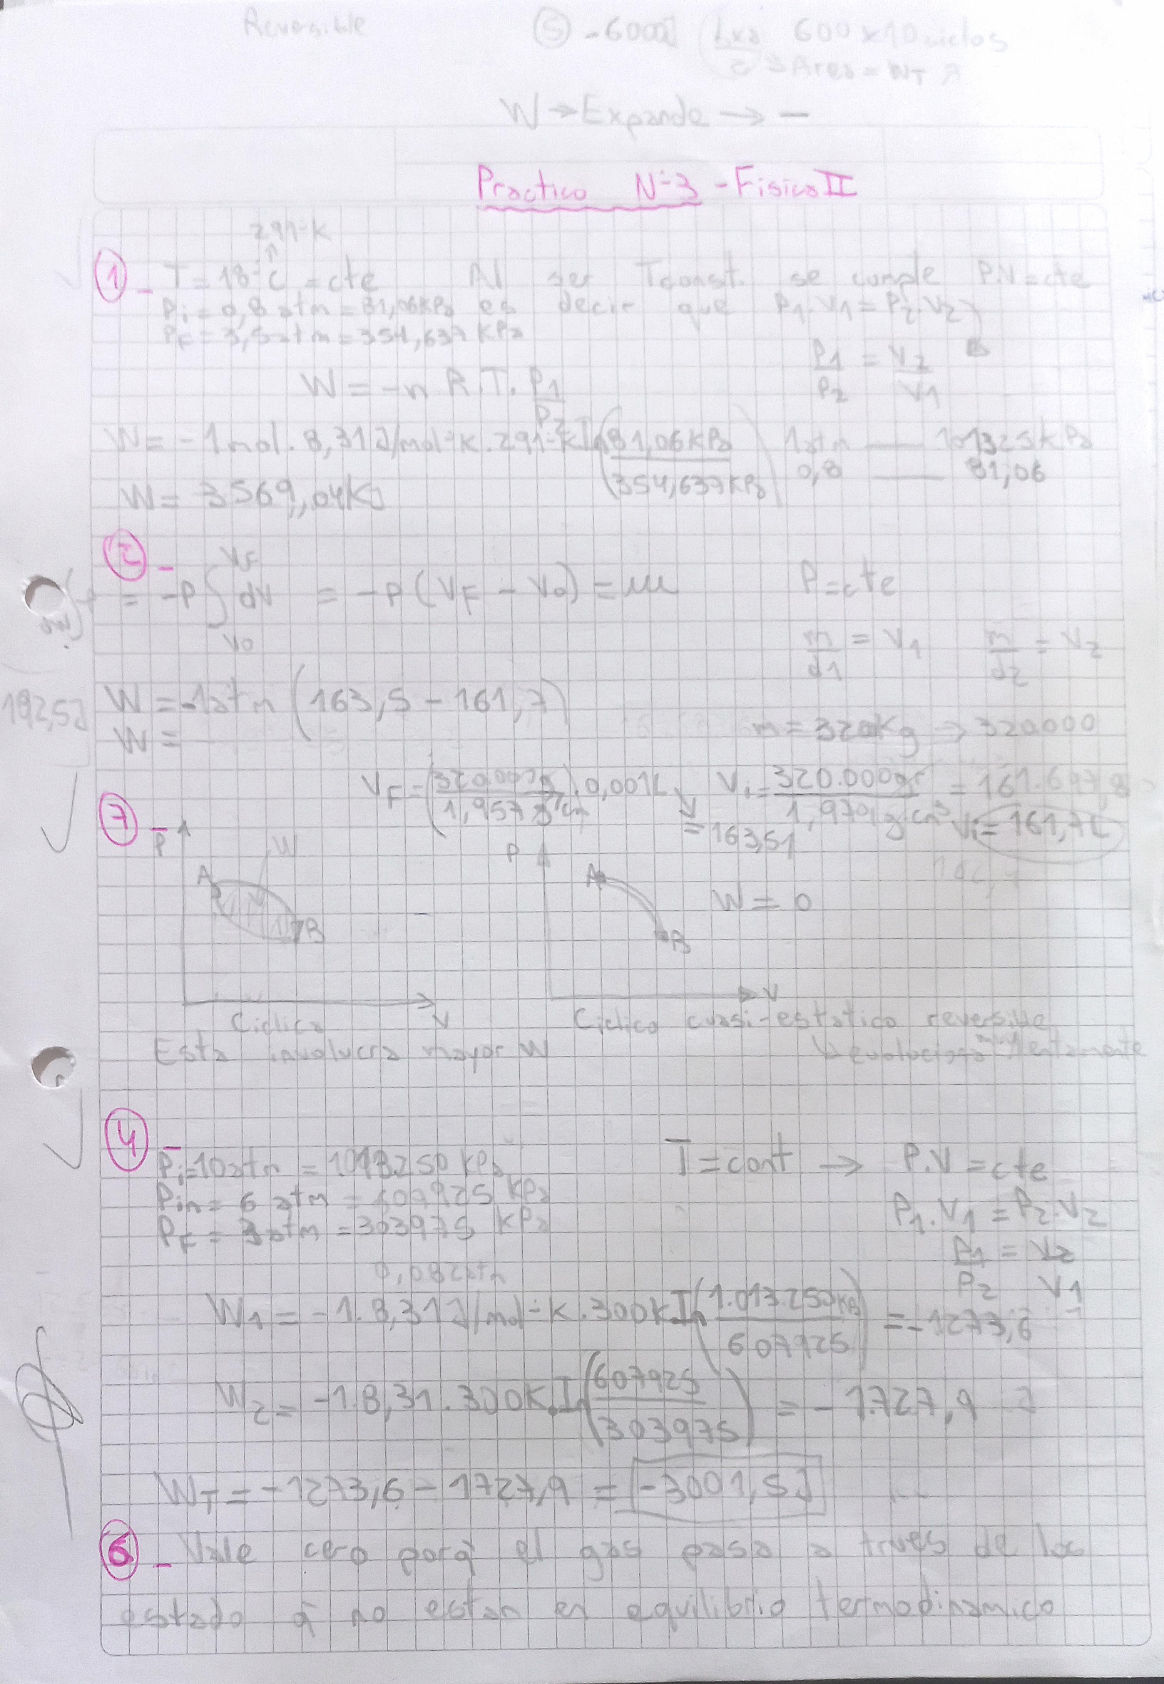 Reversible
⑤ -6000J 600 x 10 ciclos
Area = WT
W → Expande → —
Practico N-3 - Fisica II
291°K
① - T = 18°C = cte Al ser Tconst. se cumple P.V = cte
Pi = 0,8 atm = 81,06KPa es decir que P1.V1 = P2.V2
PF = 3,5 atm = 354,637 KPa
P1/P2 = V2/V1
W = -n R.T. P1/P2
W = -1mol. 8,31J/mol°K. 291°K ln(81,06KPa / 354,637KPa) 1atm — 101325kPa
0,8 — 81,06
W = 3569,04KJ
② -
= -P ∫ dV = -P (VF - V0) = P = cte
VF
V0
m/d1 = V1 m/d2 = V2
192,5J W = -1atm (163,5 - 161,7)
m = 320Kg → 320.000
W =
VF = (320.000g / 1,957g/cm) 0,001L Vi = 320.000gr / 1,979g/cm³ = 161.697,8
= 163,51 Vi = 161,7L
⑦ -
P W P
A A W = 0
B B
V V
Ciclica Ciclico cuasi-estatico reversible
Esta involucra mayor W ↳ evoluciona lentamente
④ -
Pi = 10 atm = 1013250 KPa T = cont → P.V = cte
Pin = 6 atm = 607925 KPa
P1.V1 = P2.V2
PF = 3 atm = 303975 KPa
P1/P2 = V2/V1
0,082atm
W1 = -1.8,31J/mol°K. 300K ln(1.013.250KPa / 607925) = -1273,6 J
W2 = -1.8,31. 300K. ln(607925 / 303975) = -1727,9 J
WT = -1273,6 - 1727,9 = -3001,5J
⑥ - Vale cero porq' el gas pasa a traves de los
estado q' no estan en equilibrio termodinamico